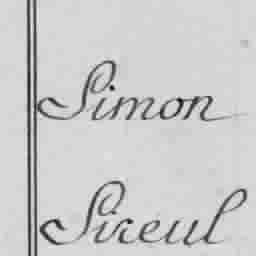 Simon
Sireul